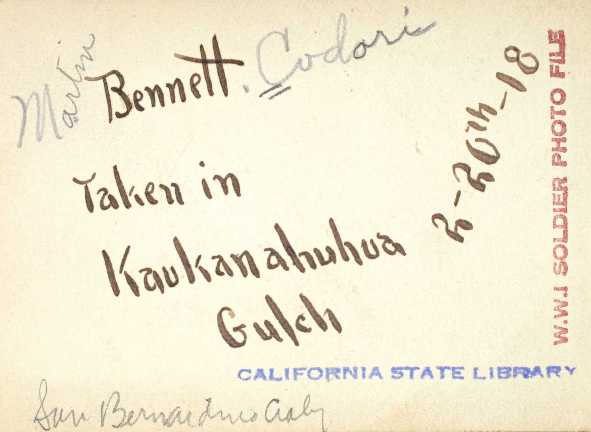 Martin Bennett. Codori
Taken in
Kaukanahuhua
Gulch
2-20th-18
W.W.I SOLDIER PHOTO FILE
CALIFORNIA STATE LIBRARY
San Bernardino